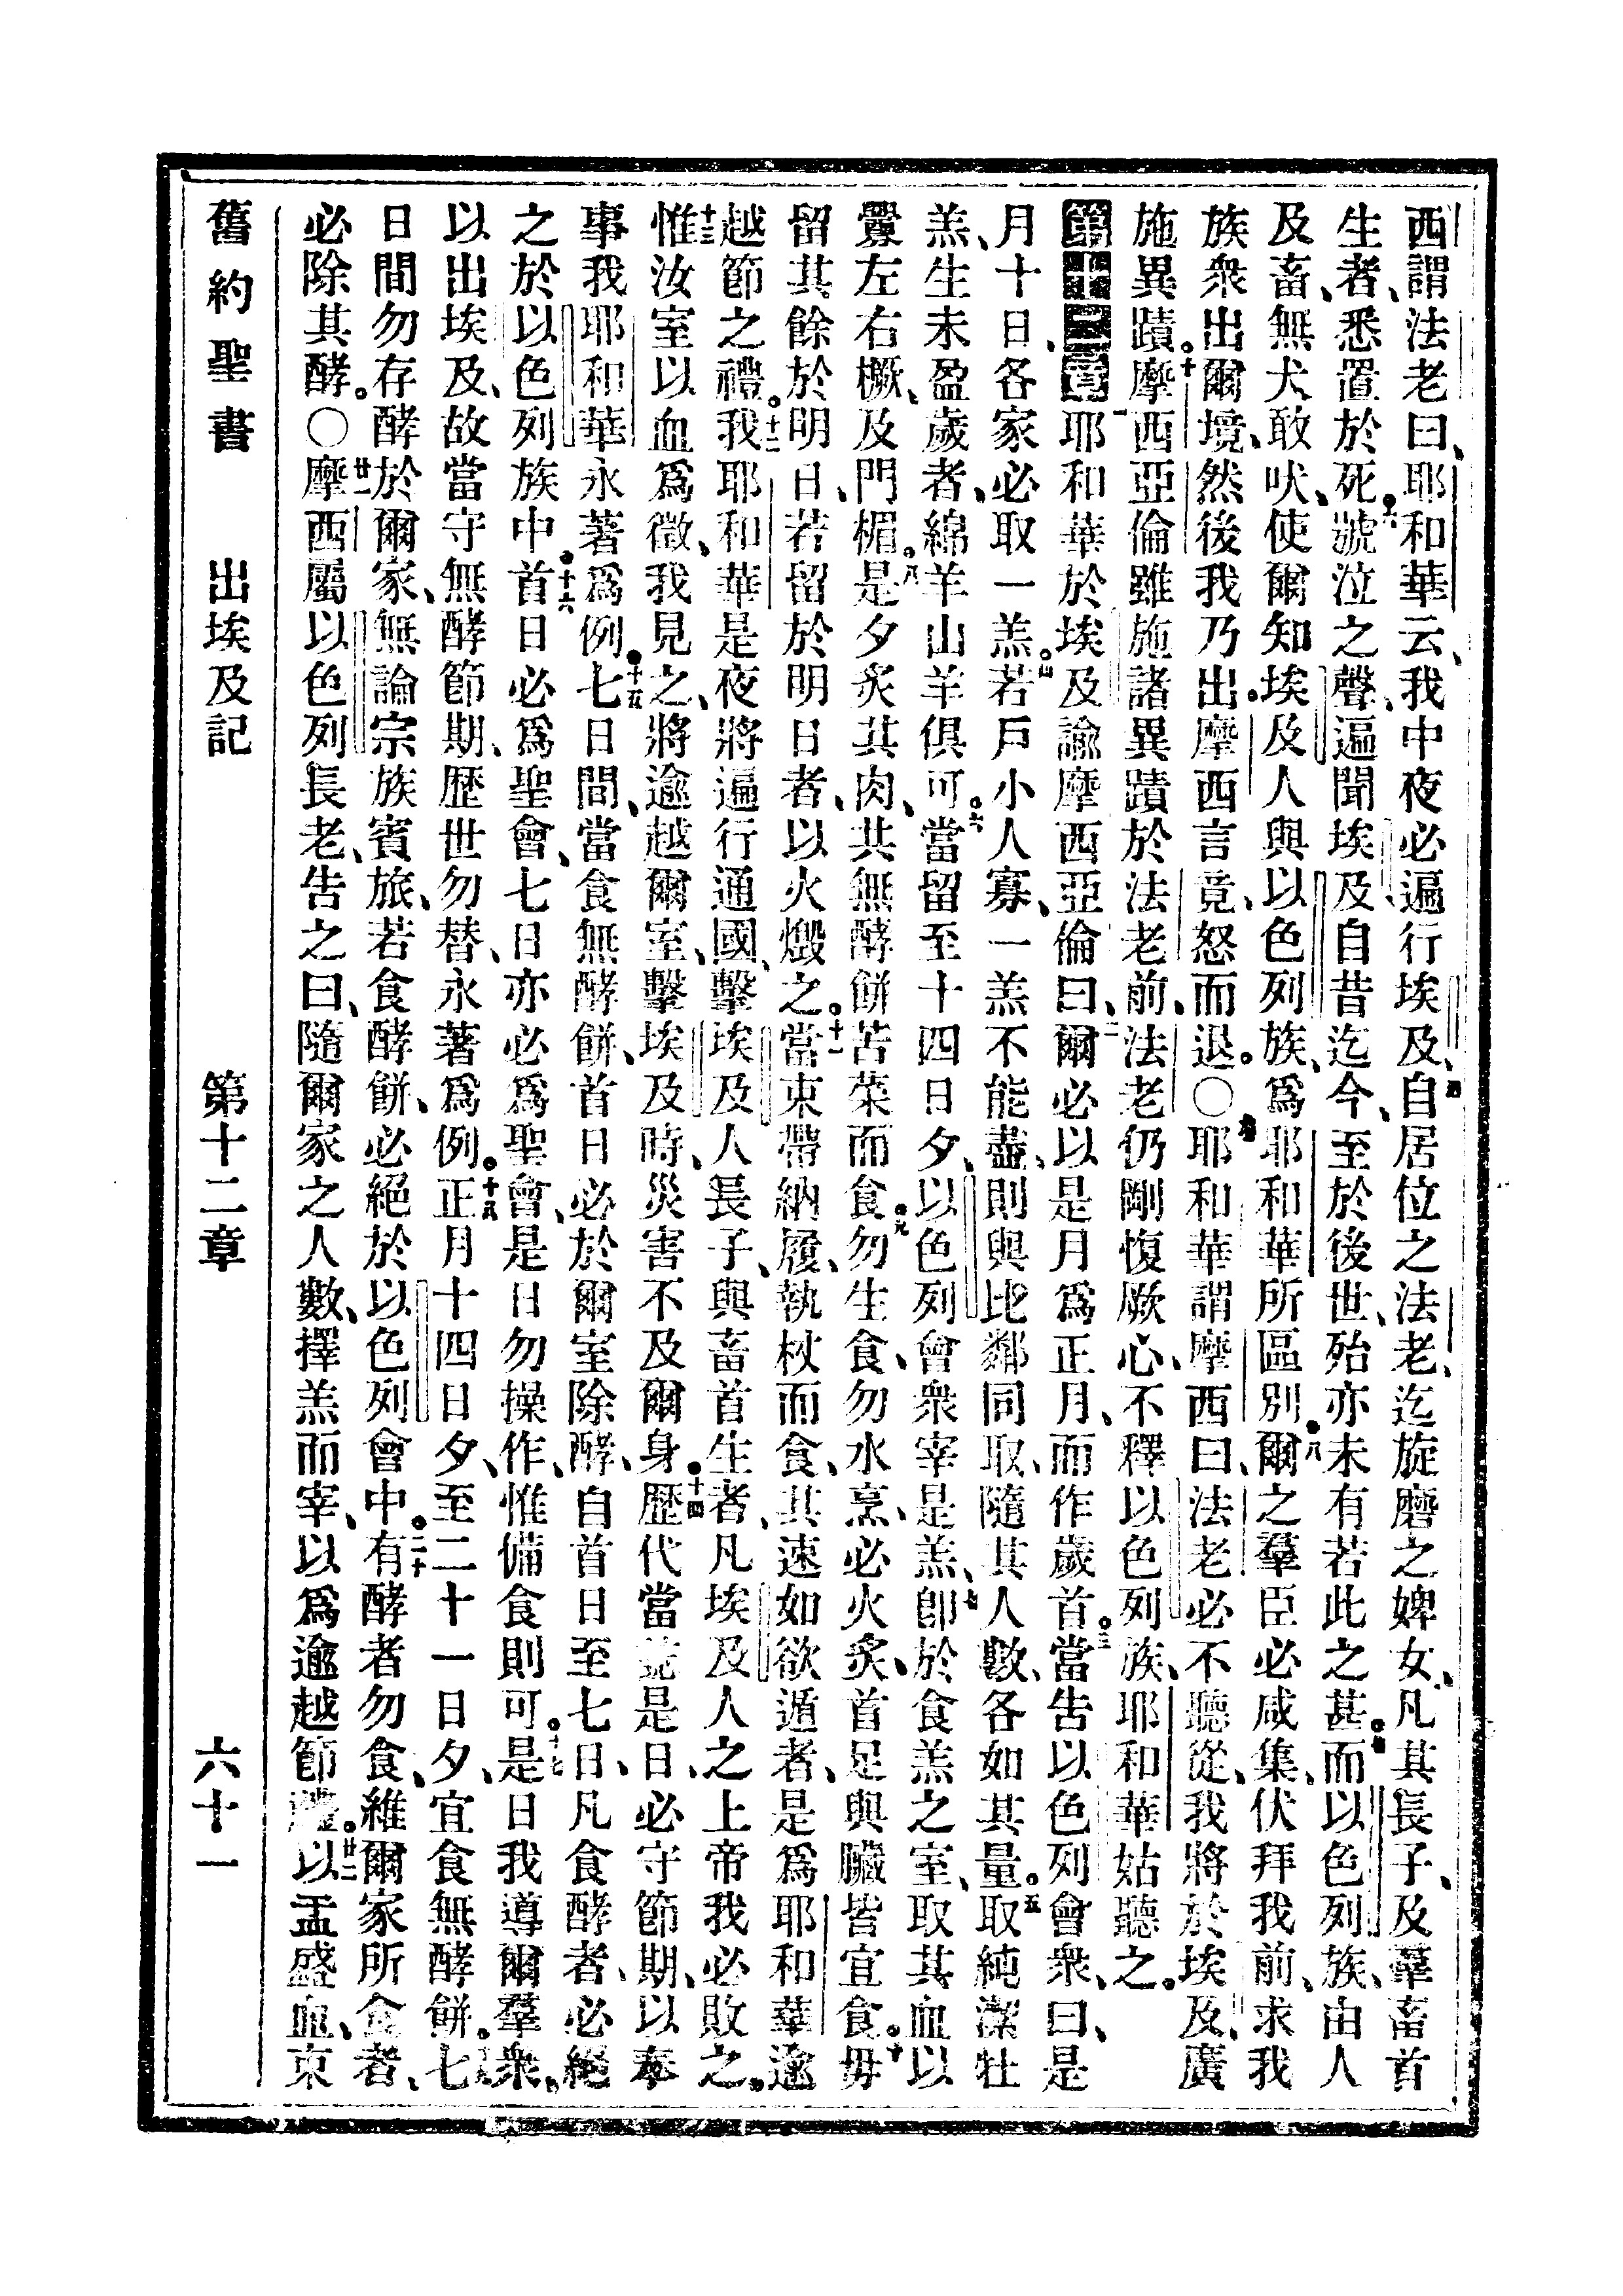 西謂法老曰、耶和華云、我中夜必遍行埃及、五自居位之法老、迄旋磨之婢女、凡其長子、及羣畜首
生者、悉置於死。六號泣之聲、遍聞埃及、自昔迄今、至於後世、殆亦未有若此之甚。七而以色列族、由人
及畜、無犬敢吠、使爾知埃及人與以色列族、爲耶和華所區別。八爾之羣臣必咸集、伏拜我前、求我
族衆出爾境、然後我乃出。摩西言竟、怒而退。〇九耶和華謂摩西曰、法老必不聽從、我將於埃及、廣
施異蹟。十摩西亞倫雖施諸異蹟於法老前、法老仍剛愎厥心、不釋以色列族、耶和華姑聽之。
第十二章一耶和華於埃及諭摩西亞倫曰、二爾必以是月爲正月、而作歲首。三當告以色列會衆、曰、是
月十日、各家必取一羔。四若戶小人寡、一羔不能盡、則與比鄰同取、隨其人數、各如其量。五取純潔牡
羔、生未盈歲者、綿羊山羊俱可。六當留至十四日夕、以色列會衆宰是羔、七卽於食羔之室、取其血以
釁左右橛、及門楣。八是夕炙其肉、共無酵餅苦菜而食。九勿生食、勿水烹、必火炙、首足與臟皆宜食。十毋
留其餘於明日、若留於明日者、以火燬之。十一當束帶納履、執杖而食、其速如欲遁者、是爲耶和華逾
越節之禮。十二我耶和華是夜將遍行通國、擊埃及人長子、與畜首生者、凡埃及人之上帝我必敗之。
十三惟汝室以血爲徵、我見之、將逾越爾室、擊埃及時、災害不及爾身。十四歷代當以是日、必守節期、以奉
事我耶和華永著爲例。十五七日間、當食無酵餅、首日必於爾室除酵、自首日至七日、凡食酵者、必絕
之於以色列族中。十六首日必爲聖會、七日亦必爲聖會、是日勿操作、惟備食則可。十七是日我導爾羣衆、
以出埃及、故當守無酵節期、歷世勿替、永著爲例。十八正月十四日夕、至二十一日夕、宜食無酵餅。七
日間勿存酵於爾家、無論宗族賓旅、若食酵餅、必絕於以色列會中。二十有酵者勿食、維爾家所食者、
必除其酵。〇廿一摩西屬以色列長老、告之曰、隨爾家之人數、擇羔而宰、以爲逾越節禮。廿二以盂盛血、束
舊約聖書　出埃及記　第十二章　六十一